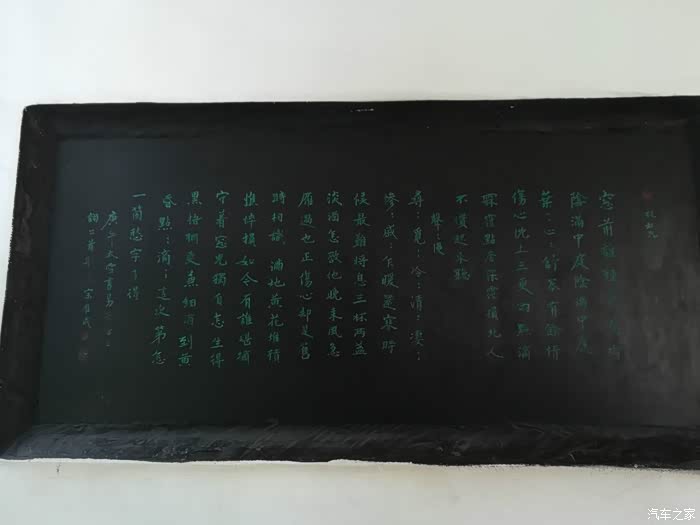 窓前誰種芭蕉樹
陰滿中庭陰滿中庭
葉：心：舒卷有餘情
傷心枕上三更雨點滴
霖霪點滴霖霪損北人
不慣起來聽
聲：慢
尋：覓：冷：清：凄：
慘：戚：乍暖還寒時
候最難將息三杯兩盞
淡酒怎敵他晚來風急
雁過也正傷心却是舊
時相識滿地黃花堆積
憔悴損如今有誰堪摘
守着窓兒獨自怎生得
黑梧桐更兼細雨到黃
昏點：滴：這次第怎
一箇愁字了得
詞二首
汽车之家